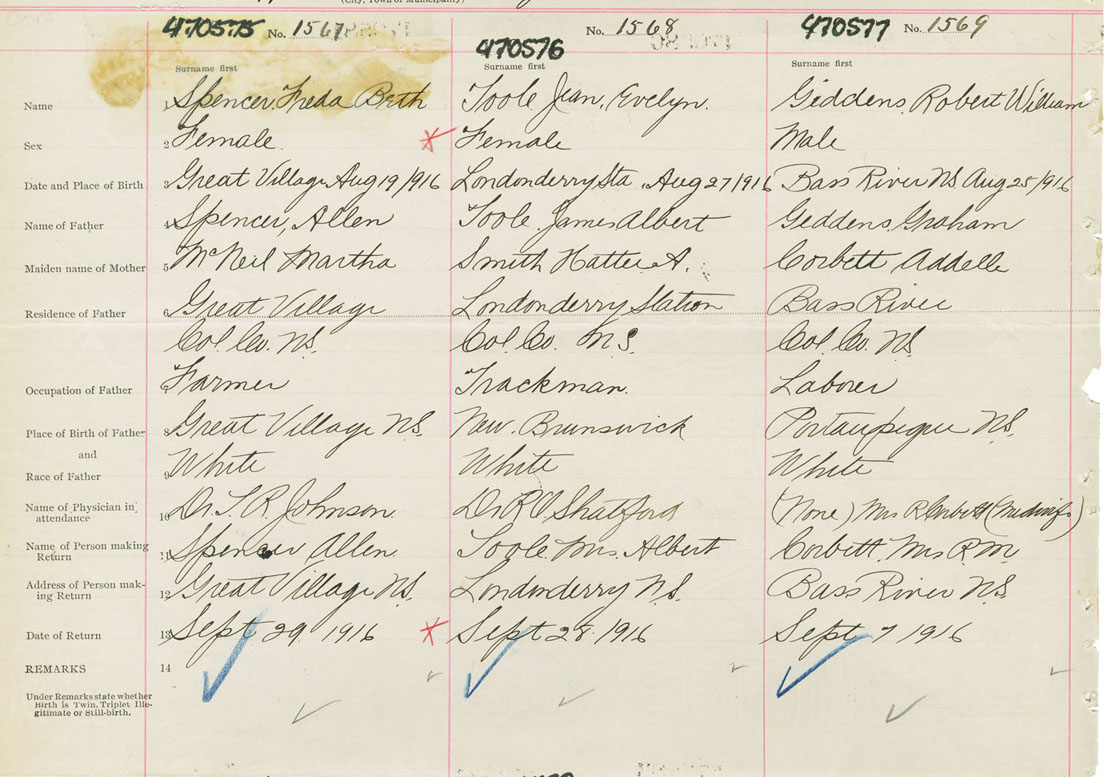 (City, Town or Municipality)
470575 No. 1567
No. 1568
470577 No. 1569
470576
Surname first Surname first Surname first
Name 1 Spencer, Freda Beth Toole Jean, Evelyn. Geddens, Robert William
Sex 2 Female. Female Male
Date and Place of Birth 3 Great Village Aug 19/916 Londonderry Sta. Aug 27/916 Bass River NS Aug 25/916
Name of Father 4 Spencer, Allen Toole, James Albert Geddens, Graham
Maiden name of Mother 5 McNeil Martha Smith Hattie A. Corbett Addelle
Residence of Father 6 Great Village Londonderry Station Bass River
Col. Co. N.S. Col. Co. N.S. Col. Co. NS
Occupation of Father 7 Farmer Trackman. Laborer
Place of Birth of Father 8 Great Village N.S. New. Brunswick Portaupique N.S.
and
Race of Father 9 White White White
Name of Physician in attendance 10 Dr. T. R. Johnson. Dr R O Shatford (None) Mrs R Corbett (Midwife)
Name of Person making Return 11 Spencer Allen. Toole Mrs. Albert Corbett. Mrs R. M.
Address of Person making Return 12 Great Village N.S. Londonderry N.S. Bass River N.S.
Date of Return 13 Sept 29 1916 Sept 28. 1916 Sept 7 1916
REMARKS 14
Under Remarks state whether
Birth is Twin, Triplet Ille-
gitimate or Still-birth.